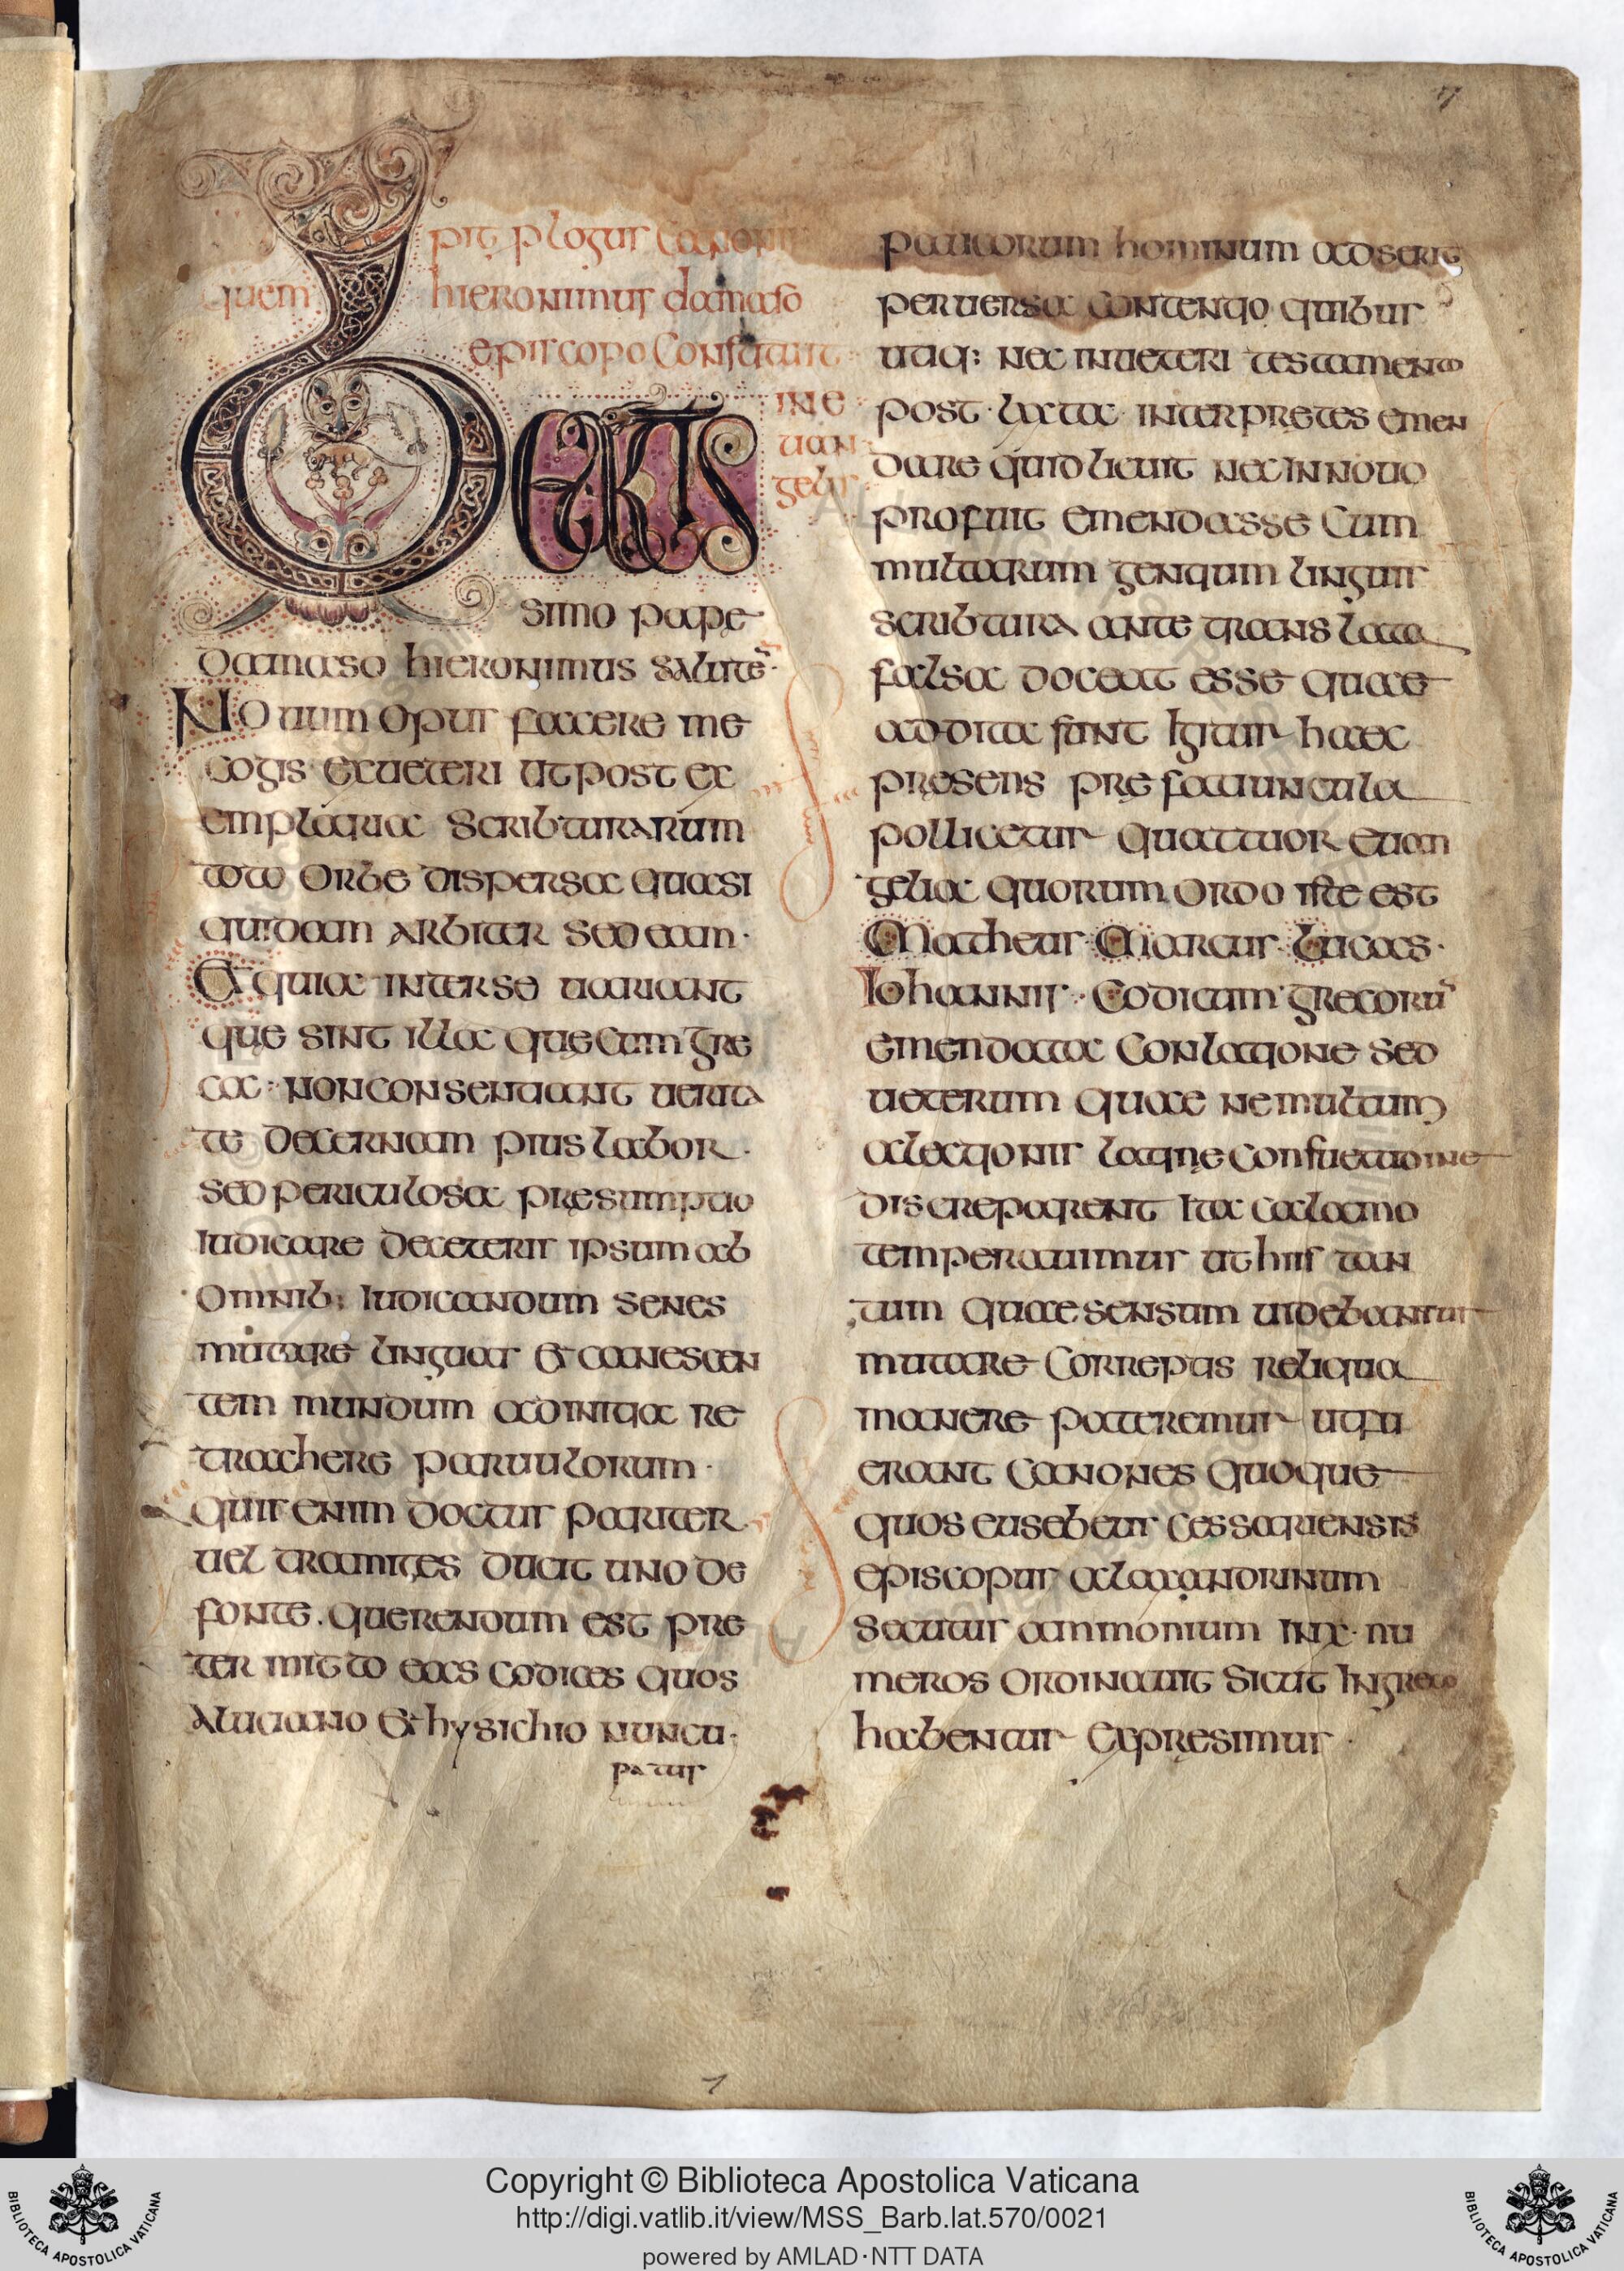 pit plogus Canonu
quem hieronimus damaso
episcopo Confatuit
in e
uan
geliis
BEATIS
simo pape
damaso hieronimus salutē
Nouum opus faccere me
cogis ex ueteri ut post ex
emplaria scribturarum
toto orbe dispersa quasi
quidam arbiter sedeam·
Et quia inter se uariant
quę sint illa quę cum gre
ca· non consentiant uerita
te decernam pius labor·
sed periculosa pręsumptio
iudicare de ceteris ipsum ab
omnib; iudicandum senes
mutare linguas et canescen
tem mundum ad initia re
trachere paruulorum·
quis enim doctus pariter
uel tramitęs ducit uno de
fonte. querendum est pre
termitto eos codices quos
a luciano et hysichio nuncu·
patus
paucorum hominum adserit
peruersa contentio quibus
utiq; nec in ueteri testamento
post lxxta interpretes emen
dare quid licuit nec in nouo
profuit emendasse Cum
multarum gentium linguis
scribtura ante translata
falsa doceat esse quae
addita sunt Igitur haec
pręsens pręfatiuncula
pollicetur quattuor euan
gelia quorum ordo iste est
Matheus· Marcus· Lucas·
Iohannis· Codicum grecorū
emendata Conlatione sed
ueterum quae ne multum
a lectionis latinę consuetudine
discreparent Ita calamo
temperauimus ut hiis tan
tum quae sensum uidebantur
mutare Correptis reliqua
manere pateremur ut fu
erant Canones quoque
quos eusebeus cessariensis
episcopus alaxandrinum
secutus ammonium in x· nu
meros ordinauit sicut In greco
habentur Expręsimus
Copyright © Biblioteca Apostolica Vaticana
http://digi.vatlib.it/view/MSS_Barb.lat.570/0021
powered by AMLAD·NTT DATA
BIBLIOTECA APOSTOLICA VATICANA
BIBLIOTECA APOSTOLICA VATICANA